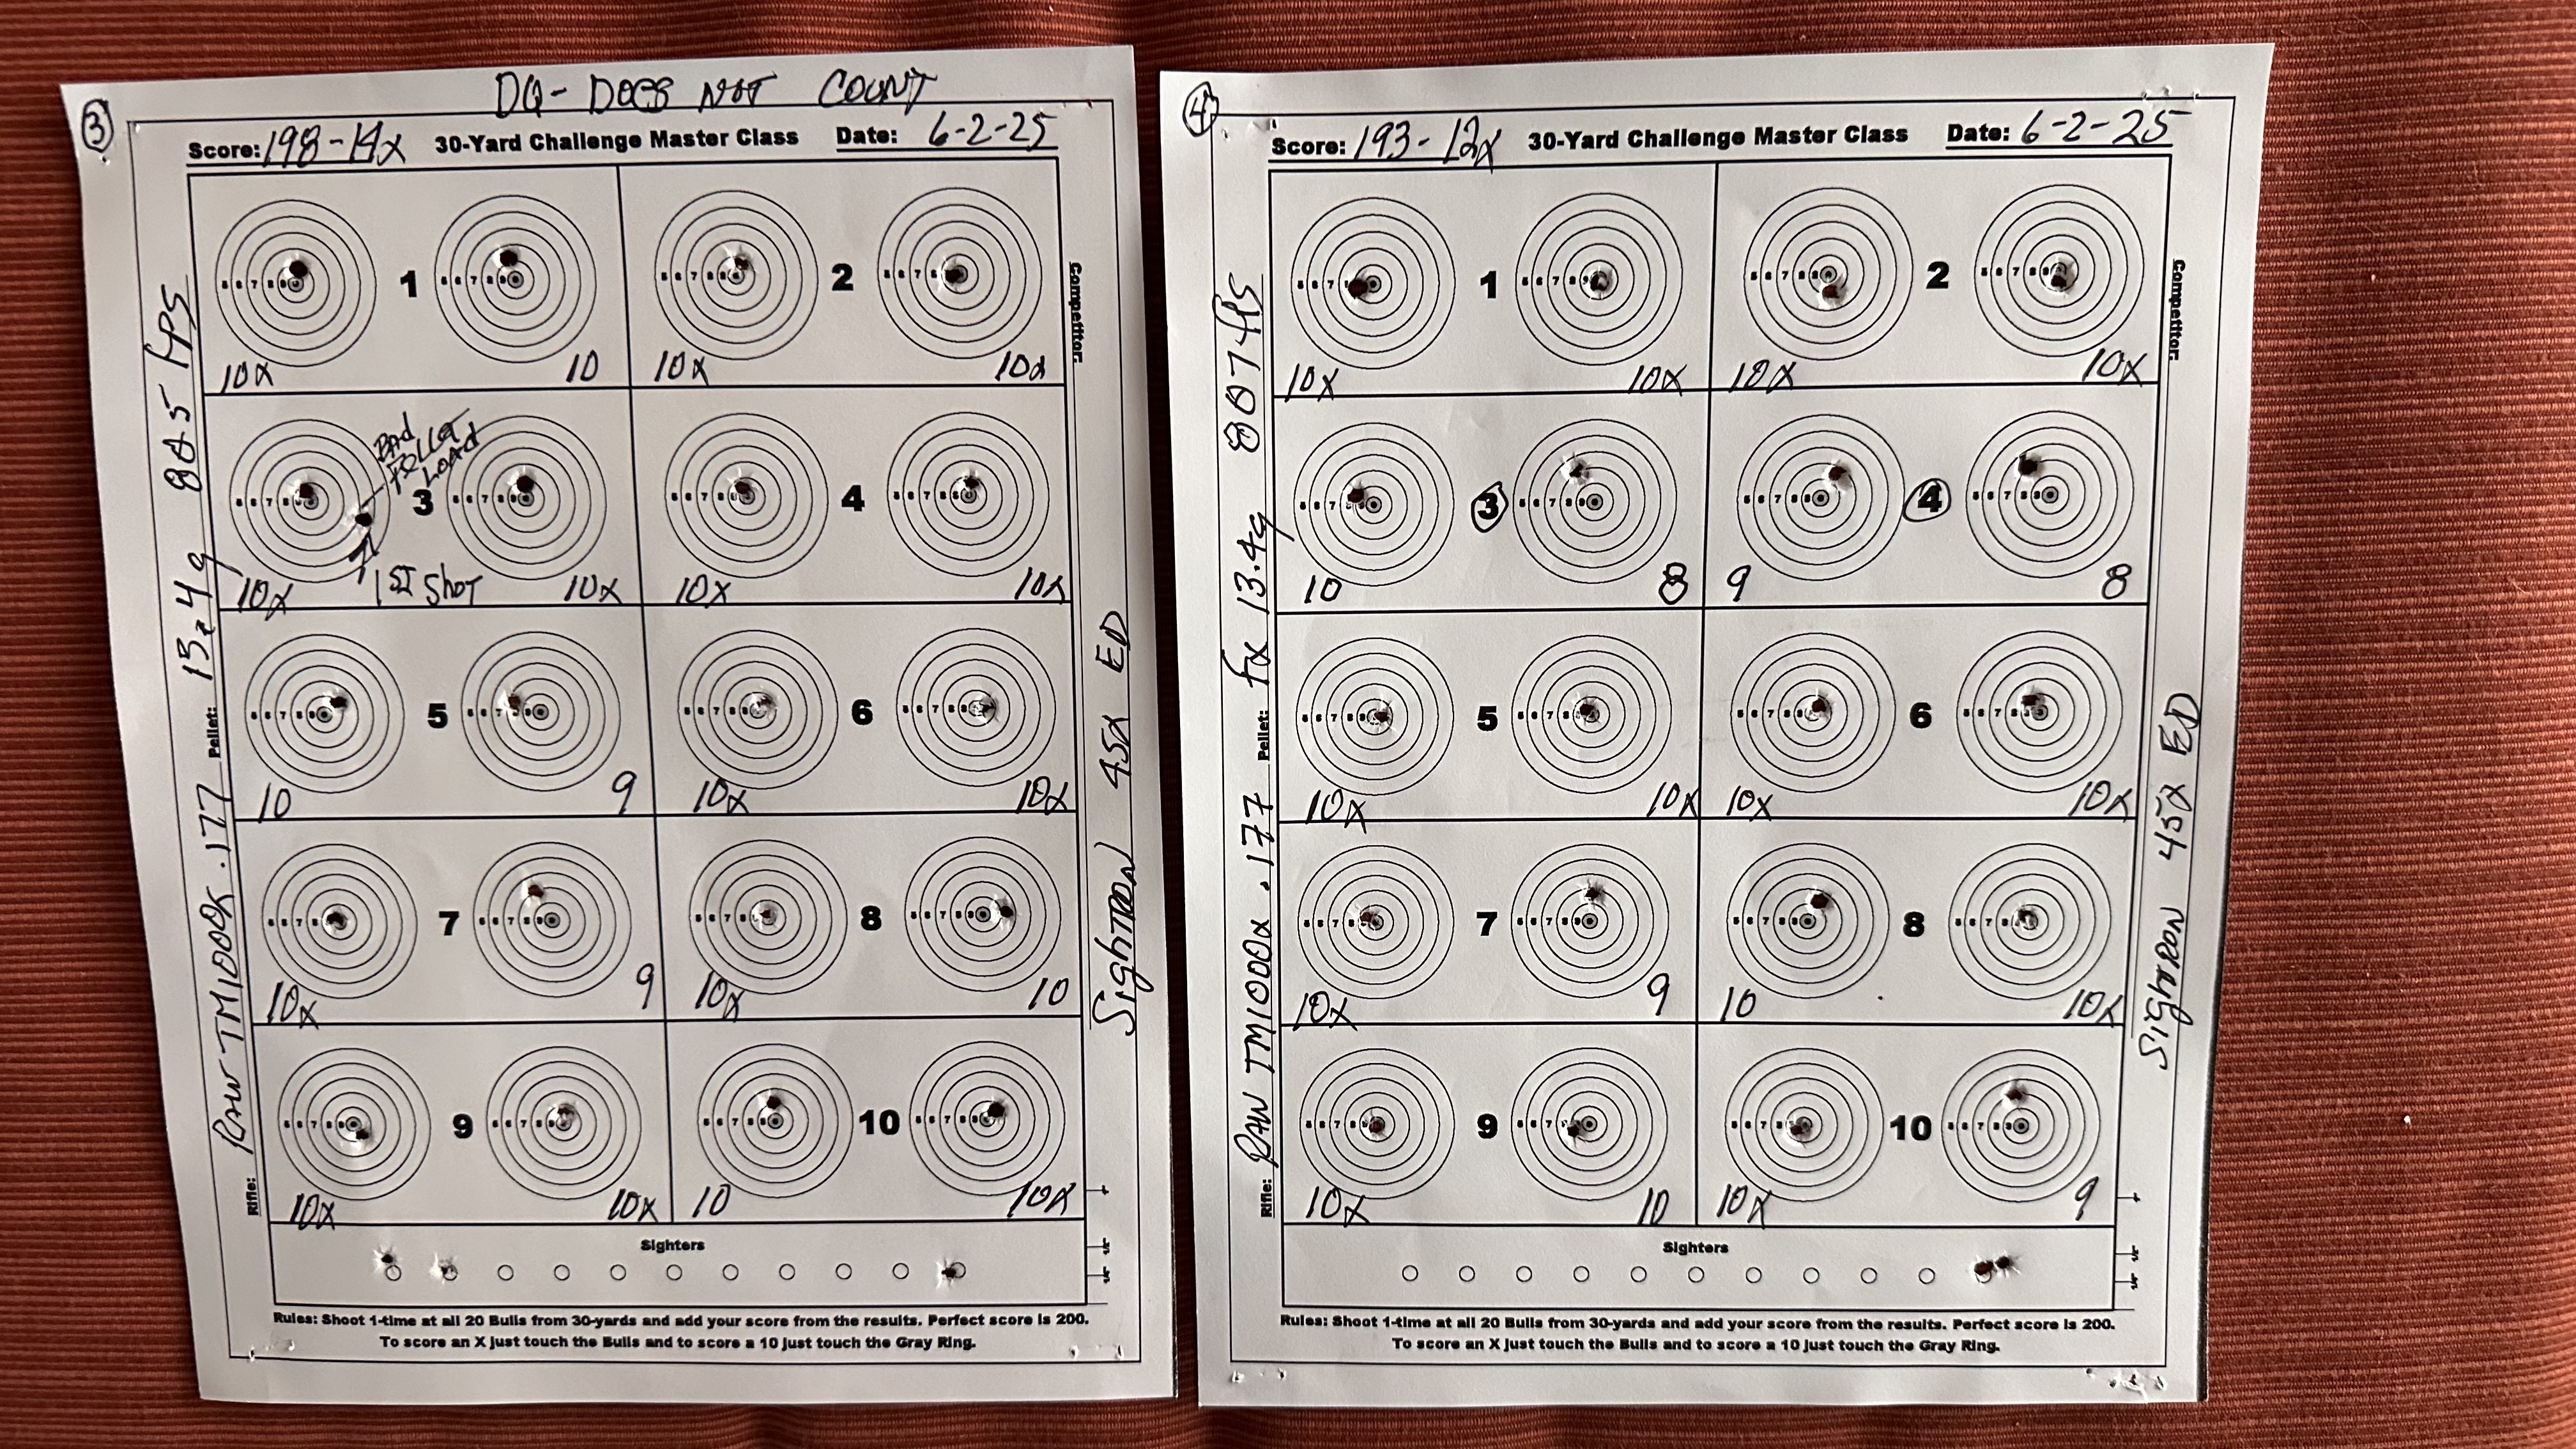 DQ- DOES NOT COUNT
3
Score: 198-14x 30-Yard Challenge Master Class Date: 6-2-25
1 2
10x 10 10x 10x
Bad
Pellet
Load
3 4
10x 1st Shot 10x 10x 10x
5 6
10 9 10x 10x
7 8
10x 9 10x 10
9 10
10x 10x 10 10x
Sighters
Rules: Shoot 1-time at all 20 Bulls from 30-yards and add your score from the results. Perfect score is 200.
To score an X just touch the Bulls and to score a 10 just touch the Gray Ring.
Rifle: RAW TM1000x .177 Pellet: 13.4g 805 FPS
Competitor:
Sightron 45x ED
4
Score: 193-12x 30-Yard Challenge Master Class Date: 6-2-25
1 2
10x 10x 10x 10x
3 4
10 8 9 8
5 6
10x 10x 10x 10x
7 8
10x 9 10 10x
9 10
10x 10 10x 9
Sighters
Rules: Shoot 1-time at all 20 Bulls from 30-yards and add your score from the results. Perfect score is 200.
To score an X just touch the Bulls and to score a 10 just touch the Gray Ring.
Rifle: RAW TM1000x .177 Pellet: fx 13.4g 807 fps
Competitor:
Sightron 45x ED